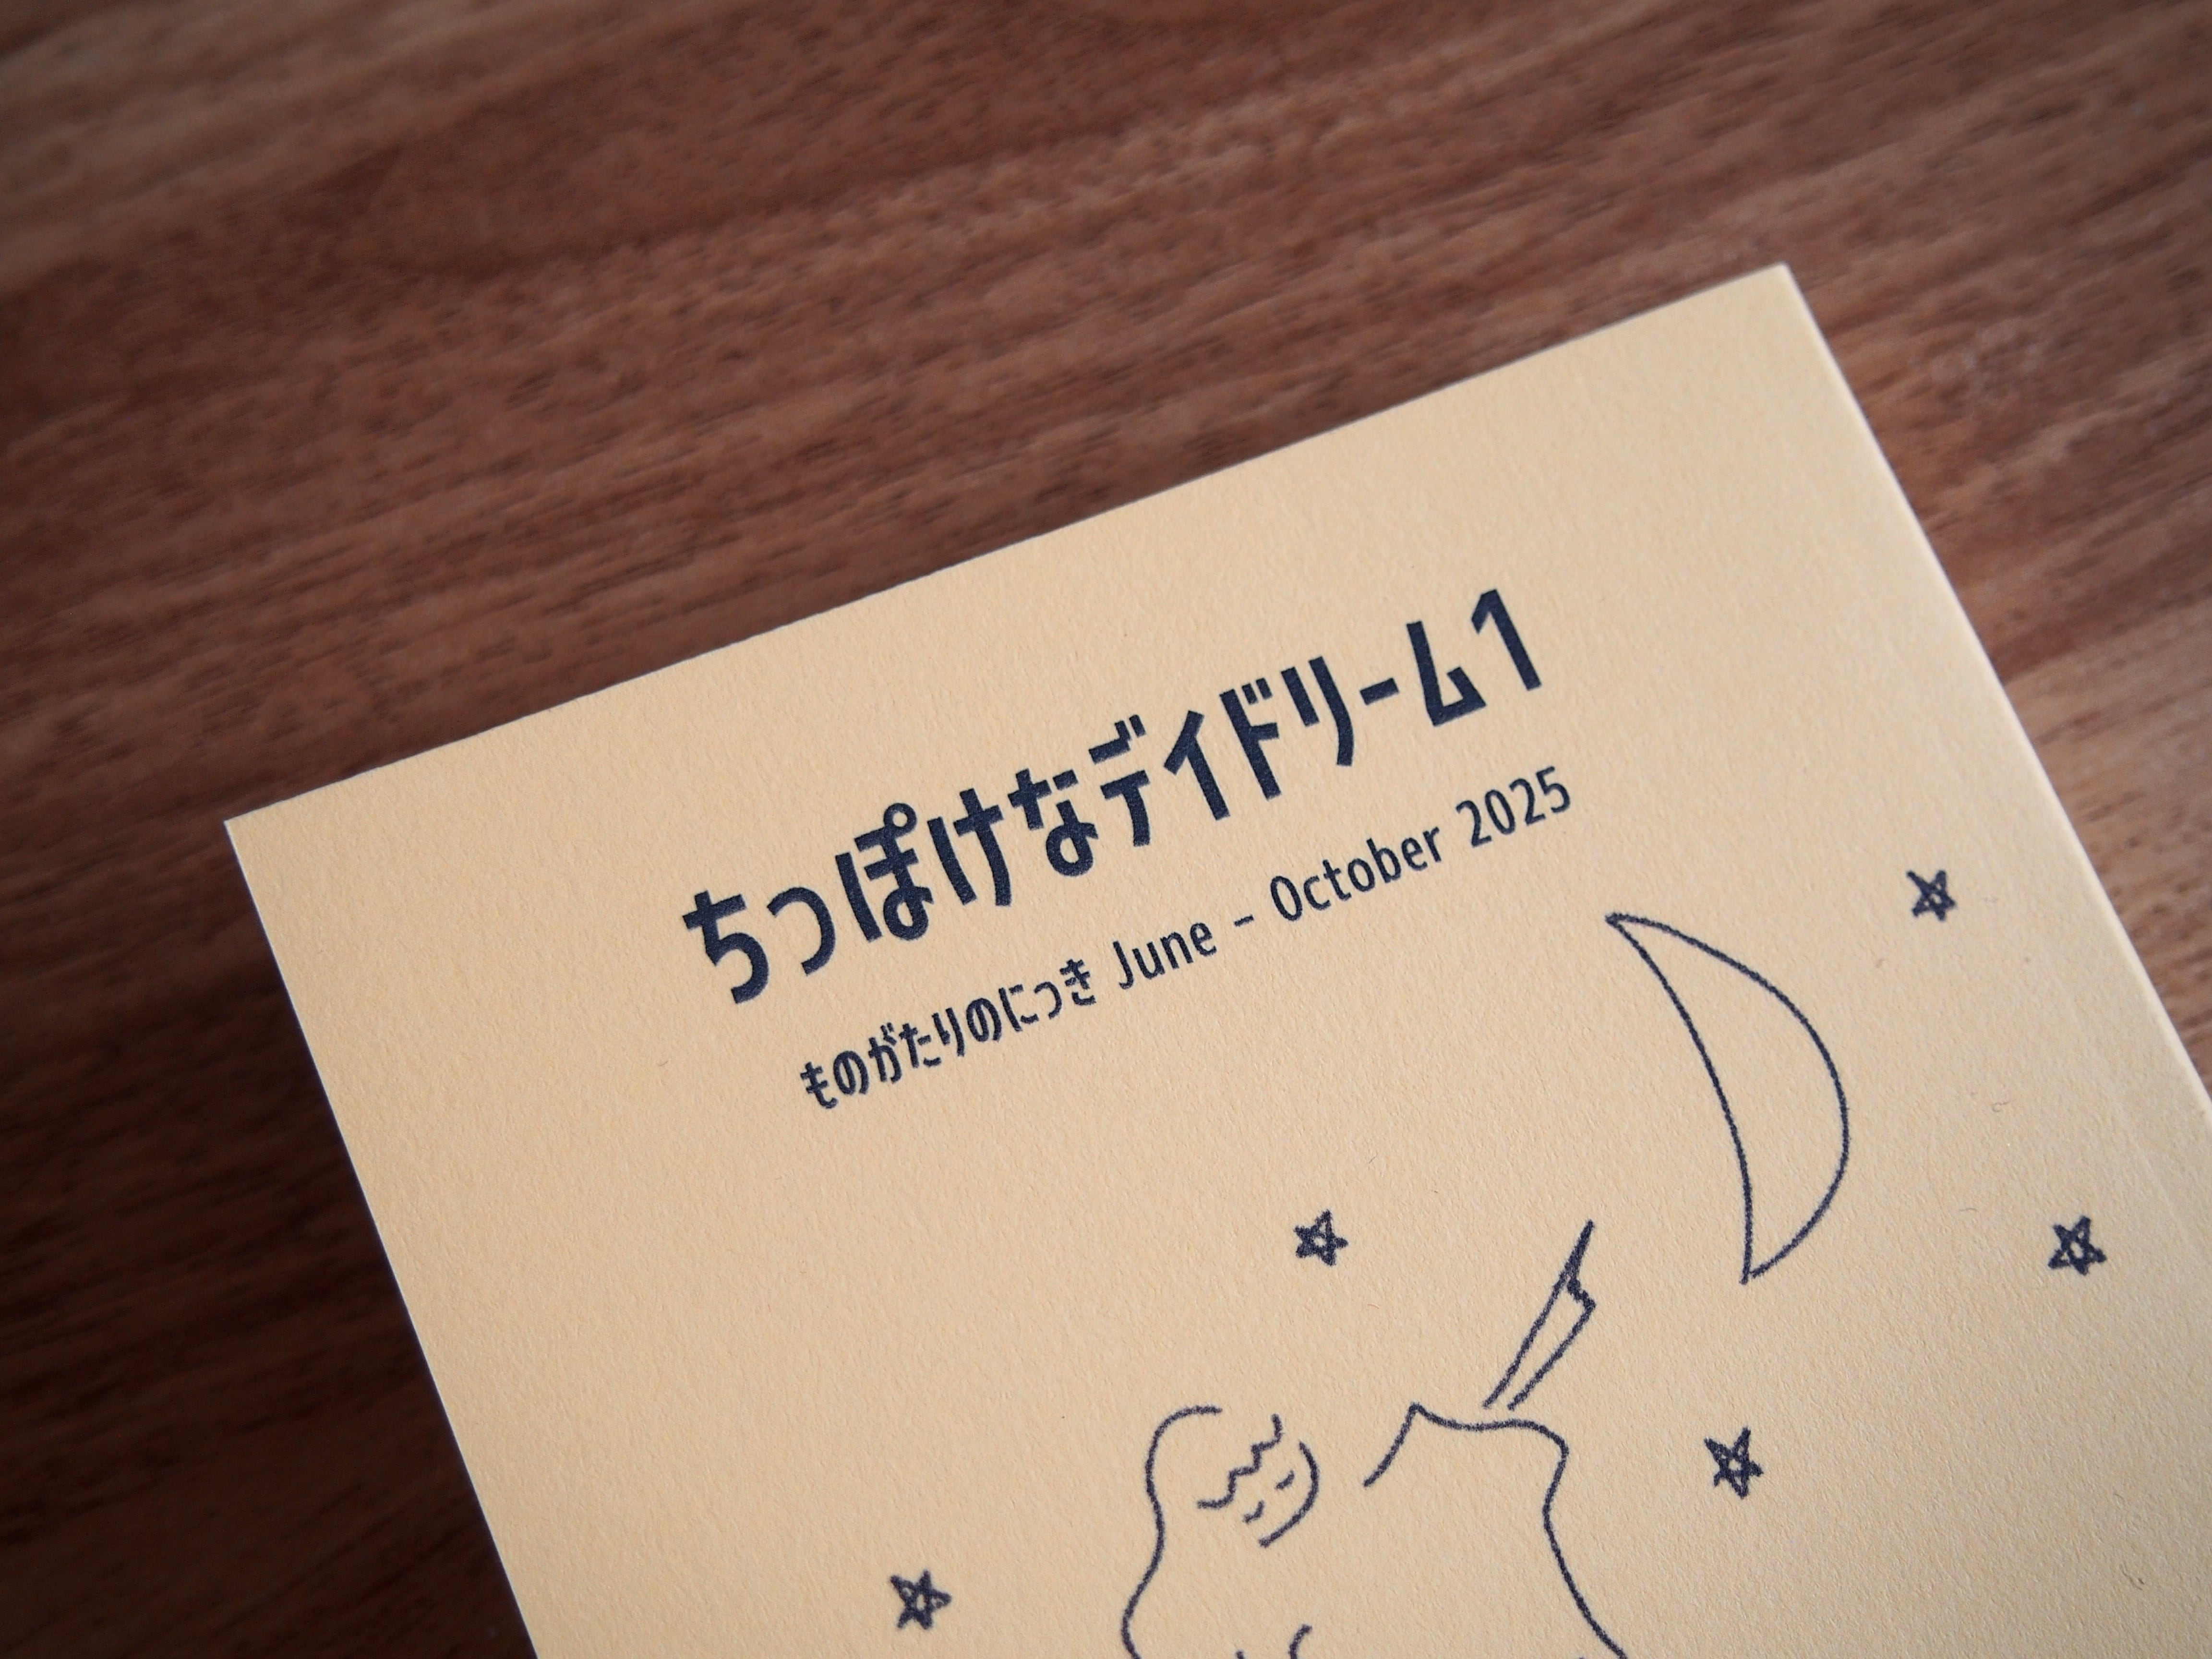 ちっぽけなデイドリーム1
ものがたりのにっき June – October 2025